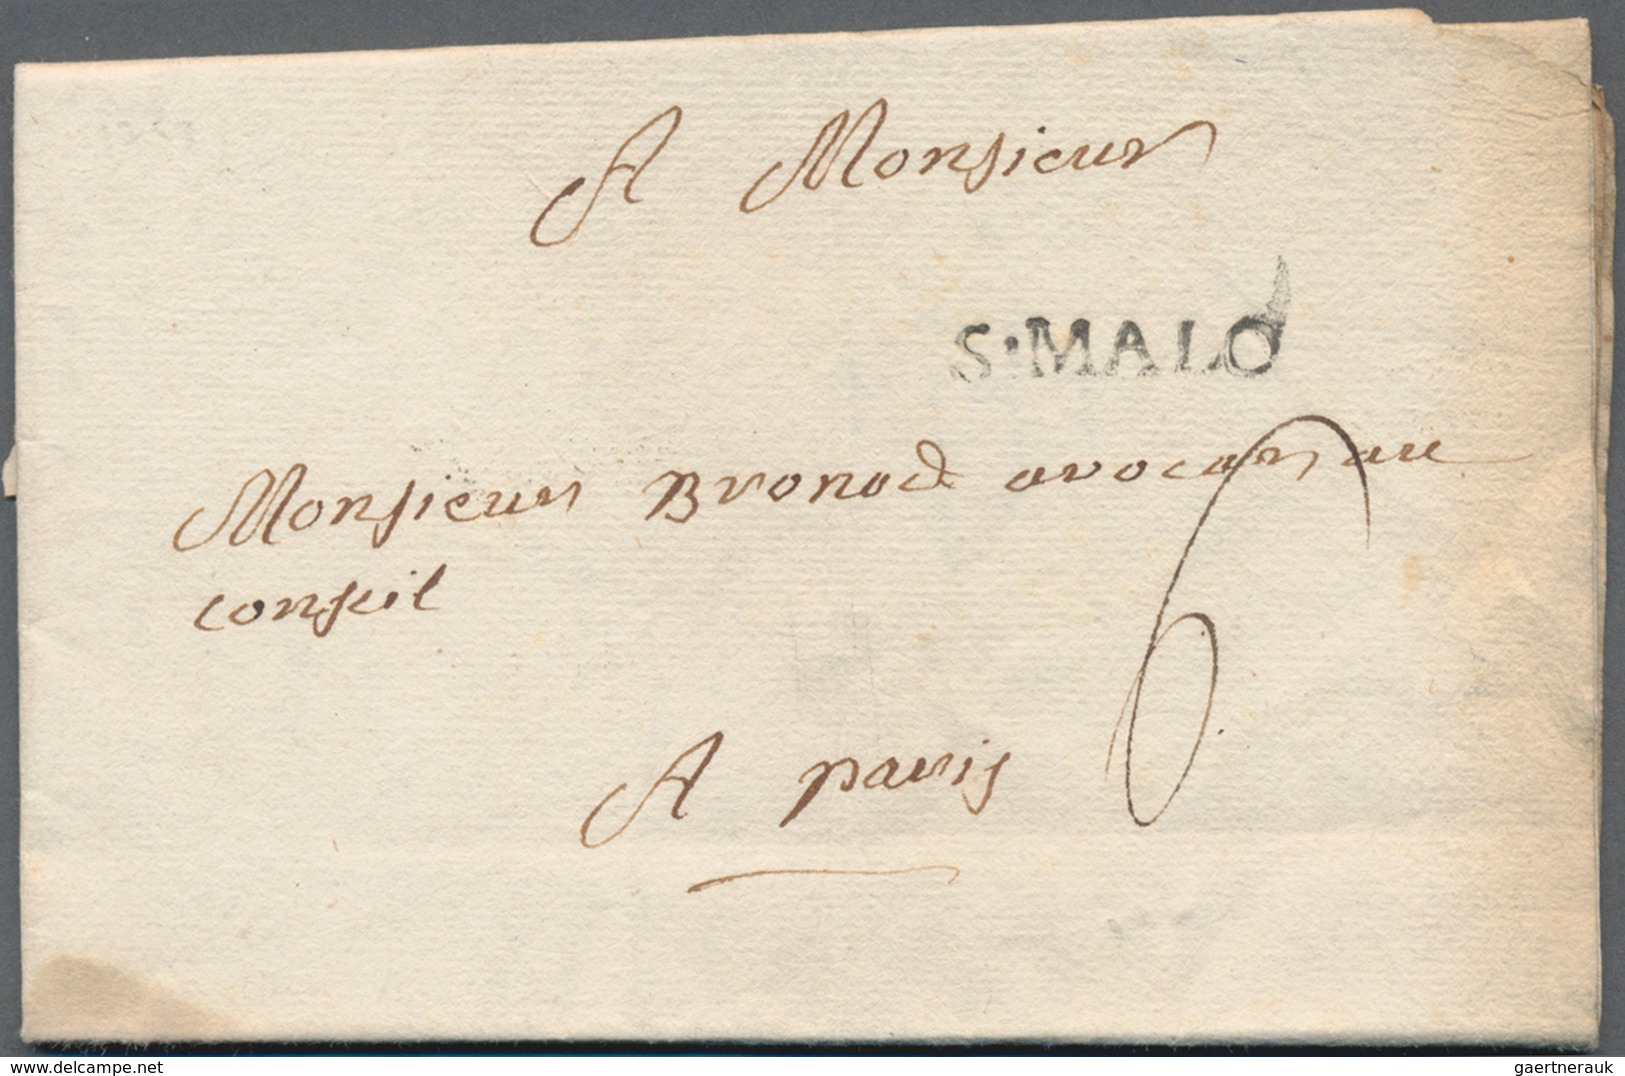 A Monsieur
S·MALO
Monsieur Bronod avocat au
conseil
6
A paris
delcampe.net
gaertnerauk